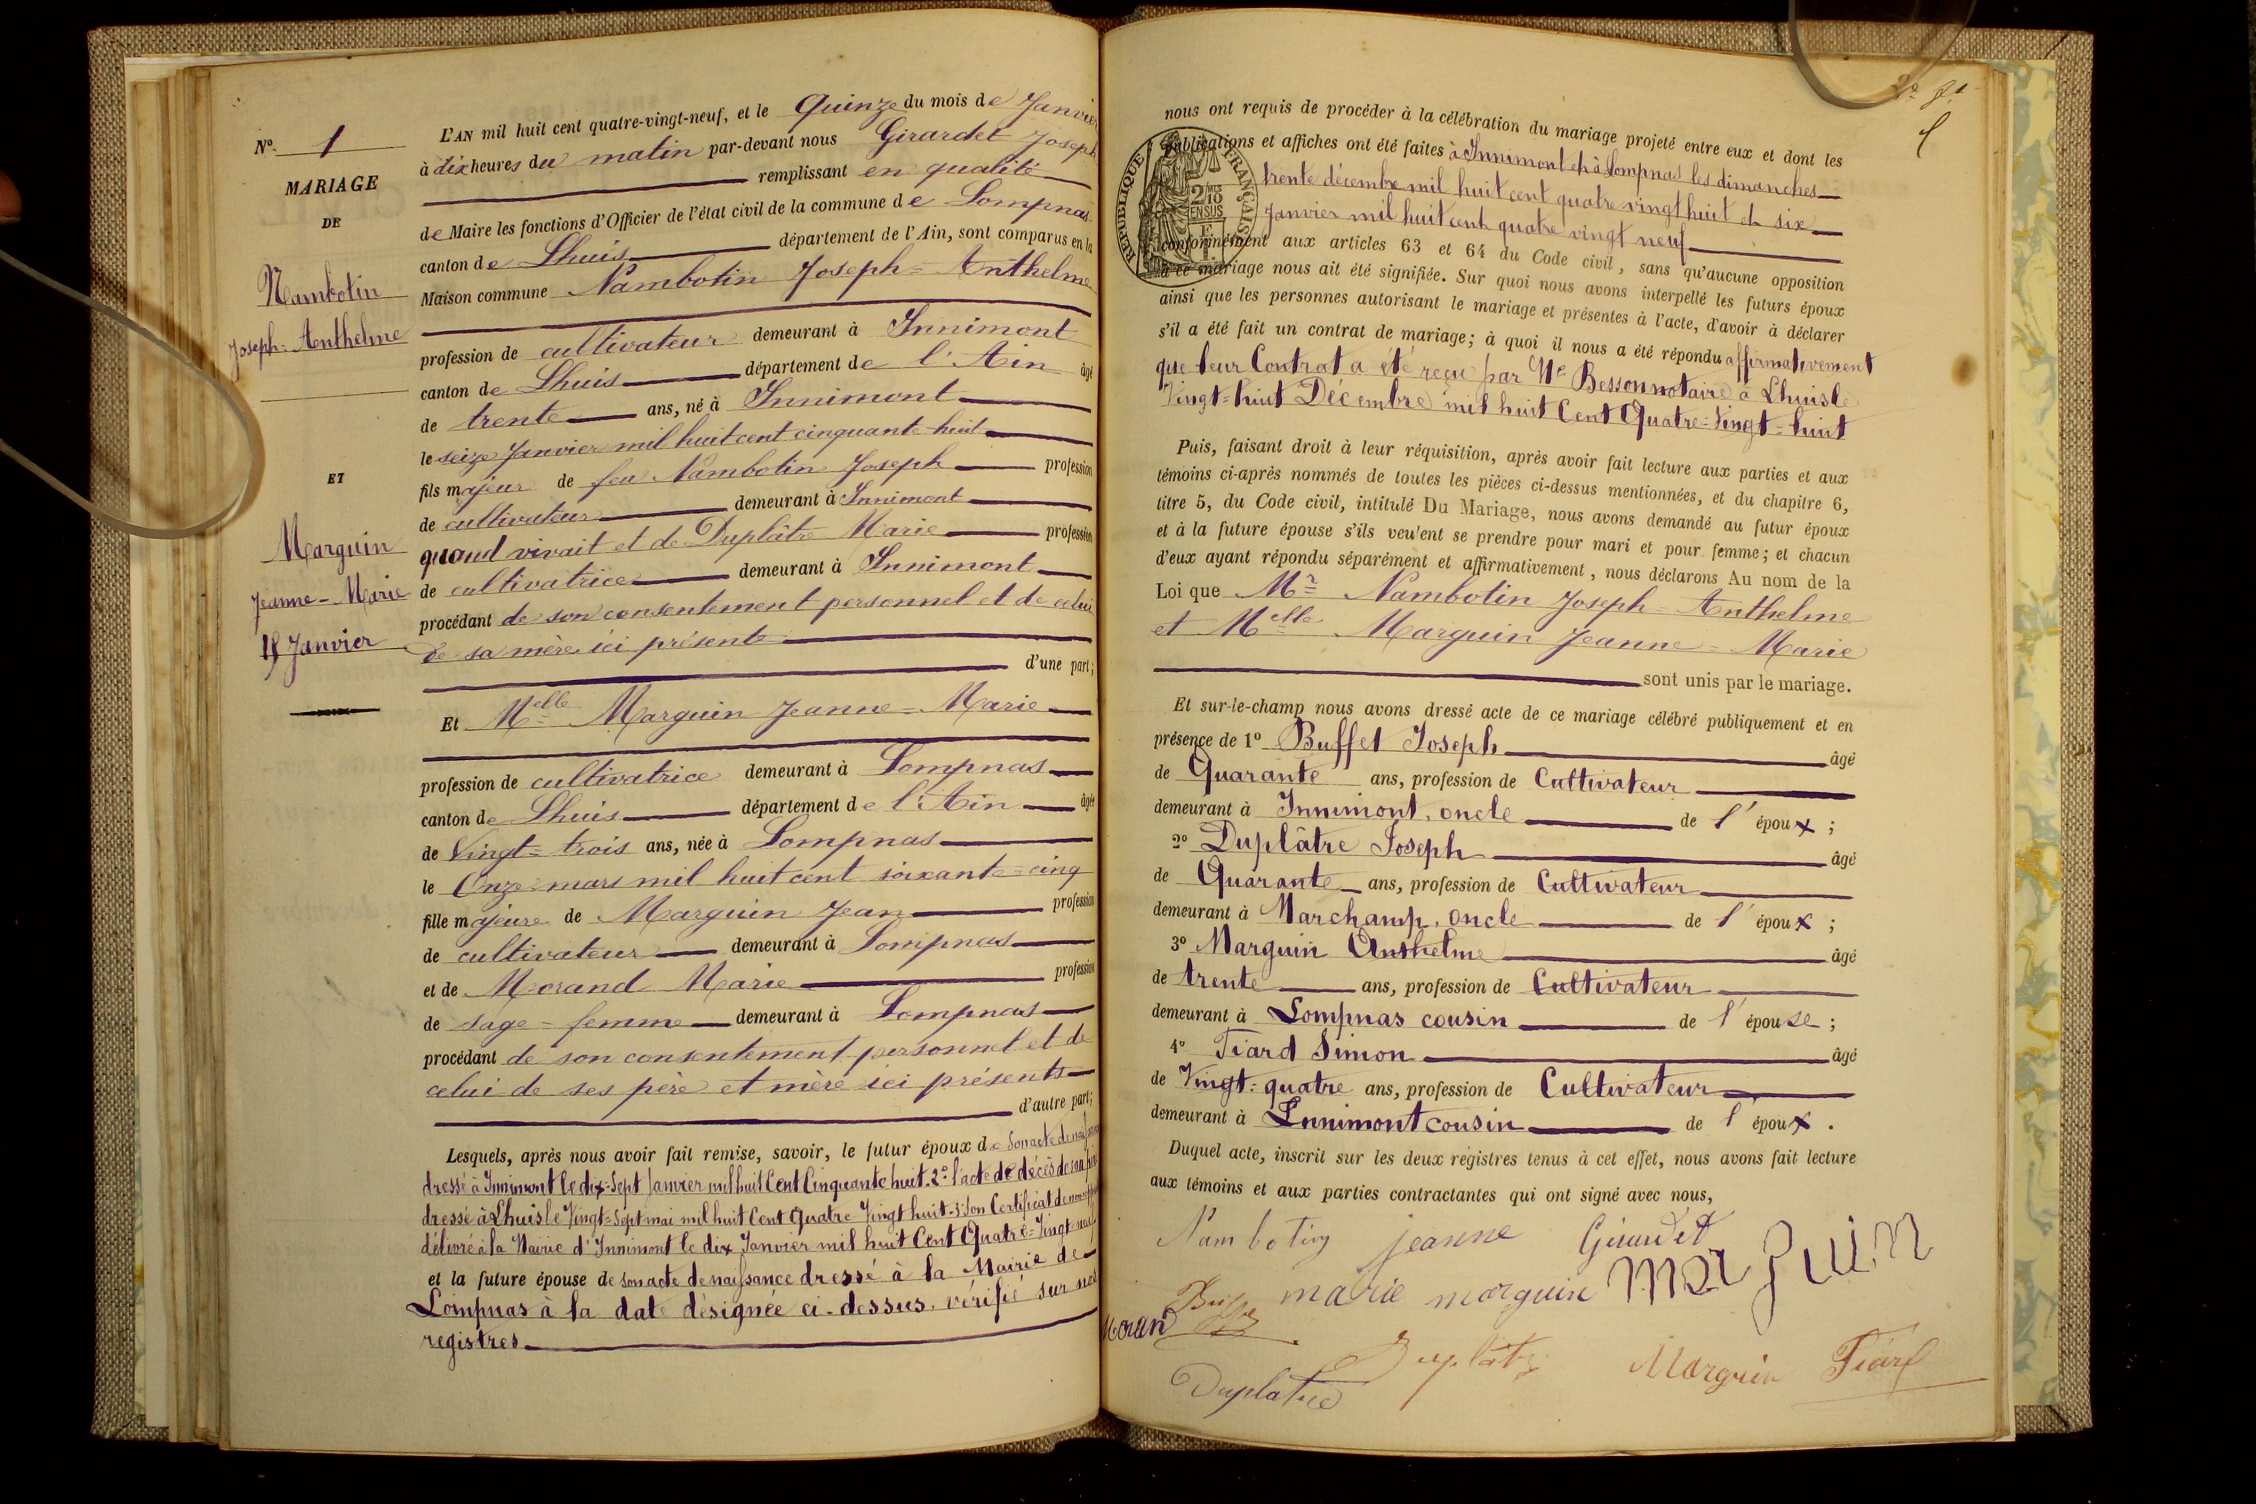 N° 1
MARIAGE
DE
Nambotin
Joseph-Anthelme
ET
Marguin
Jeanne-Marie
15 Janvier
L'AN mil huit cent quatre-vingt-neuf, et le Quinze du mois de Janvier
à dix heures du matin par-devant nous Girardet Joseph
remplissant en qualité
de Maire les fonctions d'Officier de l'état civil de la commune de Lompnas
canton de Lhuis département de l'Ain, sont comparus en la
Maison commune Nambotin Joseph=Anthelme
profession de cultivateur demeurant à Innimont
canton de Lhuis département de l'Ain âgé
de trente ans, né à Innimont
le seize Janvier mil huit cent cinquante-huit
fils majeur de feu Nambotin Joseph profession
de cultivateur demeurant à Innimont
quand vivait et de Duplâtre Marie profession
de cultivatrice demeurant à Innimont
procédant de son consentement personnel et de celui
de sa mère ici présente
d'une part;
Et Melle Marguin Jeanne=Marie
profession de cultivatrice demeurant à Lompnas
canton de Lhuis département de l'Ain âgée
de Vingt=trois ans, née à Lompnas
le Onze mars mil huit cent soixante=cinq
fille majeure de Marguin Jean profession
de cultivateur demeurant à Lompnas
et de Morand Marie profession
de sage=femme demeurant à Lompnas
procédant de son consentement personnel et de
celui de ses père et mère ici présents
d'autre part;
Lesquels, après nous avoir fait remise, savoir, le futur époux de son acte de naissance
dressé à Innimont le dix=Sept Janvier mil huit Cent Cinquante huit. 2° l'acte de décès de son père
dressé à Lhuis le Vingt=Sept mai mil huit Cent Quatre Vingt huit. 3° Son Certificat de
délivré à la Mairie d'Innimont le dix Janvier mil huit Cent Quatre=Vingt neuf
et la future épouse de son acte de naissance dressé à la Mairie de
Lompnas à la date désignée ci-dessus, vérifié sur nos
registres
nous ont requis de procéder à la célébration du mariage projeté entre eux et dont les
publications et affiches ont été faites à Innimont et à Lompnas les dimanches
trente décembre mil huit cent quatre vingt huit et six
Janvier mil huit cent quatre vingt neuf
conformément aux articles 63 et 64 du Code civil, sans qu'aucune opposition
à ce mariage nous ait été signifiée. Sur quoi nous avons interpellé les futurs époux
ainsi que les personnes autorisant le mariage et présentes à l'acte, d'avoir à déclarer
s'il a été fait un contrat de mariage; à quoi il nous a été répondu affirmativement
que leur Contrat a été reçu par Me Besson notaire à Lhuis le
Vingt=huit Décembre mil huit Cent Quatre=Vingt=huit
RÉPUBLIQUE FRANÇAISE
2/10
EN SUS
Puis, faisant droit à leur réquisition, après avoir fait lecture aux parties et aux
témoins ci-après nommés de toutes les pièces ci-dessus mentionnées, et du chapitre 6,
titre 5, du Code civil, intitulé Du Mariage, nous avons demandé au futur époux
et à la future épouse s'ils veu'ent se prendre pour mari et pour femme; et chacun
d'eux ayant répondu séparément et affirmativement, nous déclarons Au nom de la
Loi que Mr Nambotin Joseph=Anthelme
et Melle Marguin Jeanne=Marie
sont unis par le mariage.
Et sur-le-champ nous avons dressé acte de ce mariage célébré publiquement et en
présence de 1° Buffet Joseph âgé
de Quarante ans, profession de Cultivateur
demeurant à Innimont, oncle de l'époux ;
2° Duplâtre Joseph âgé
de Quarante ans, profession de Cultivateur
demeurant à Marchamp, oncle de l'époux ;
3° Marguin Anthelme âgé
de trente ans, profession de Cultivateur
demeurant à Lompnas cousin de l'épouse ;
4° Tiard Simon âgé
de Vingt=quatre ans, profession de Cultivateur
demeurant à Innimont cousin de l'époux .
Duquel acte, inscrit sur les deux régistres tenus à cet effet, nous avons fait lecture
aux témoins et aux parties contractantes qui ont signé avec nous,
Nambotin jeanne Girardet
marie marguin Marguin
Moran
Duplatre Marguin Tiard
Duplatre